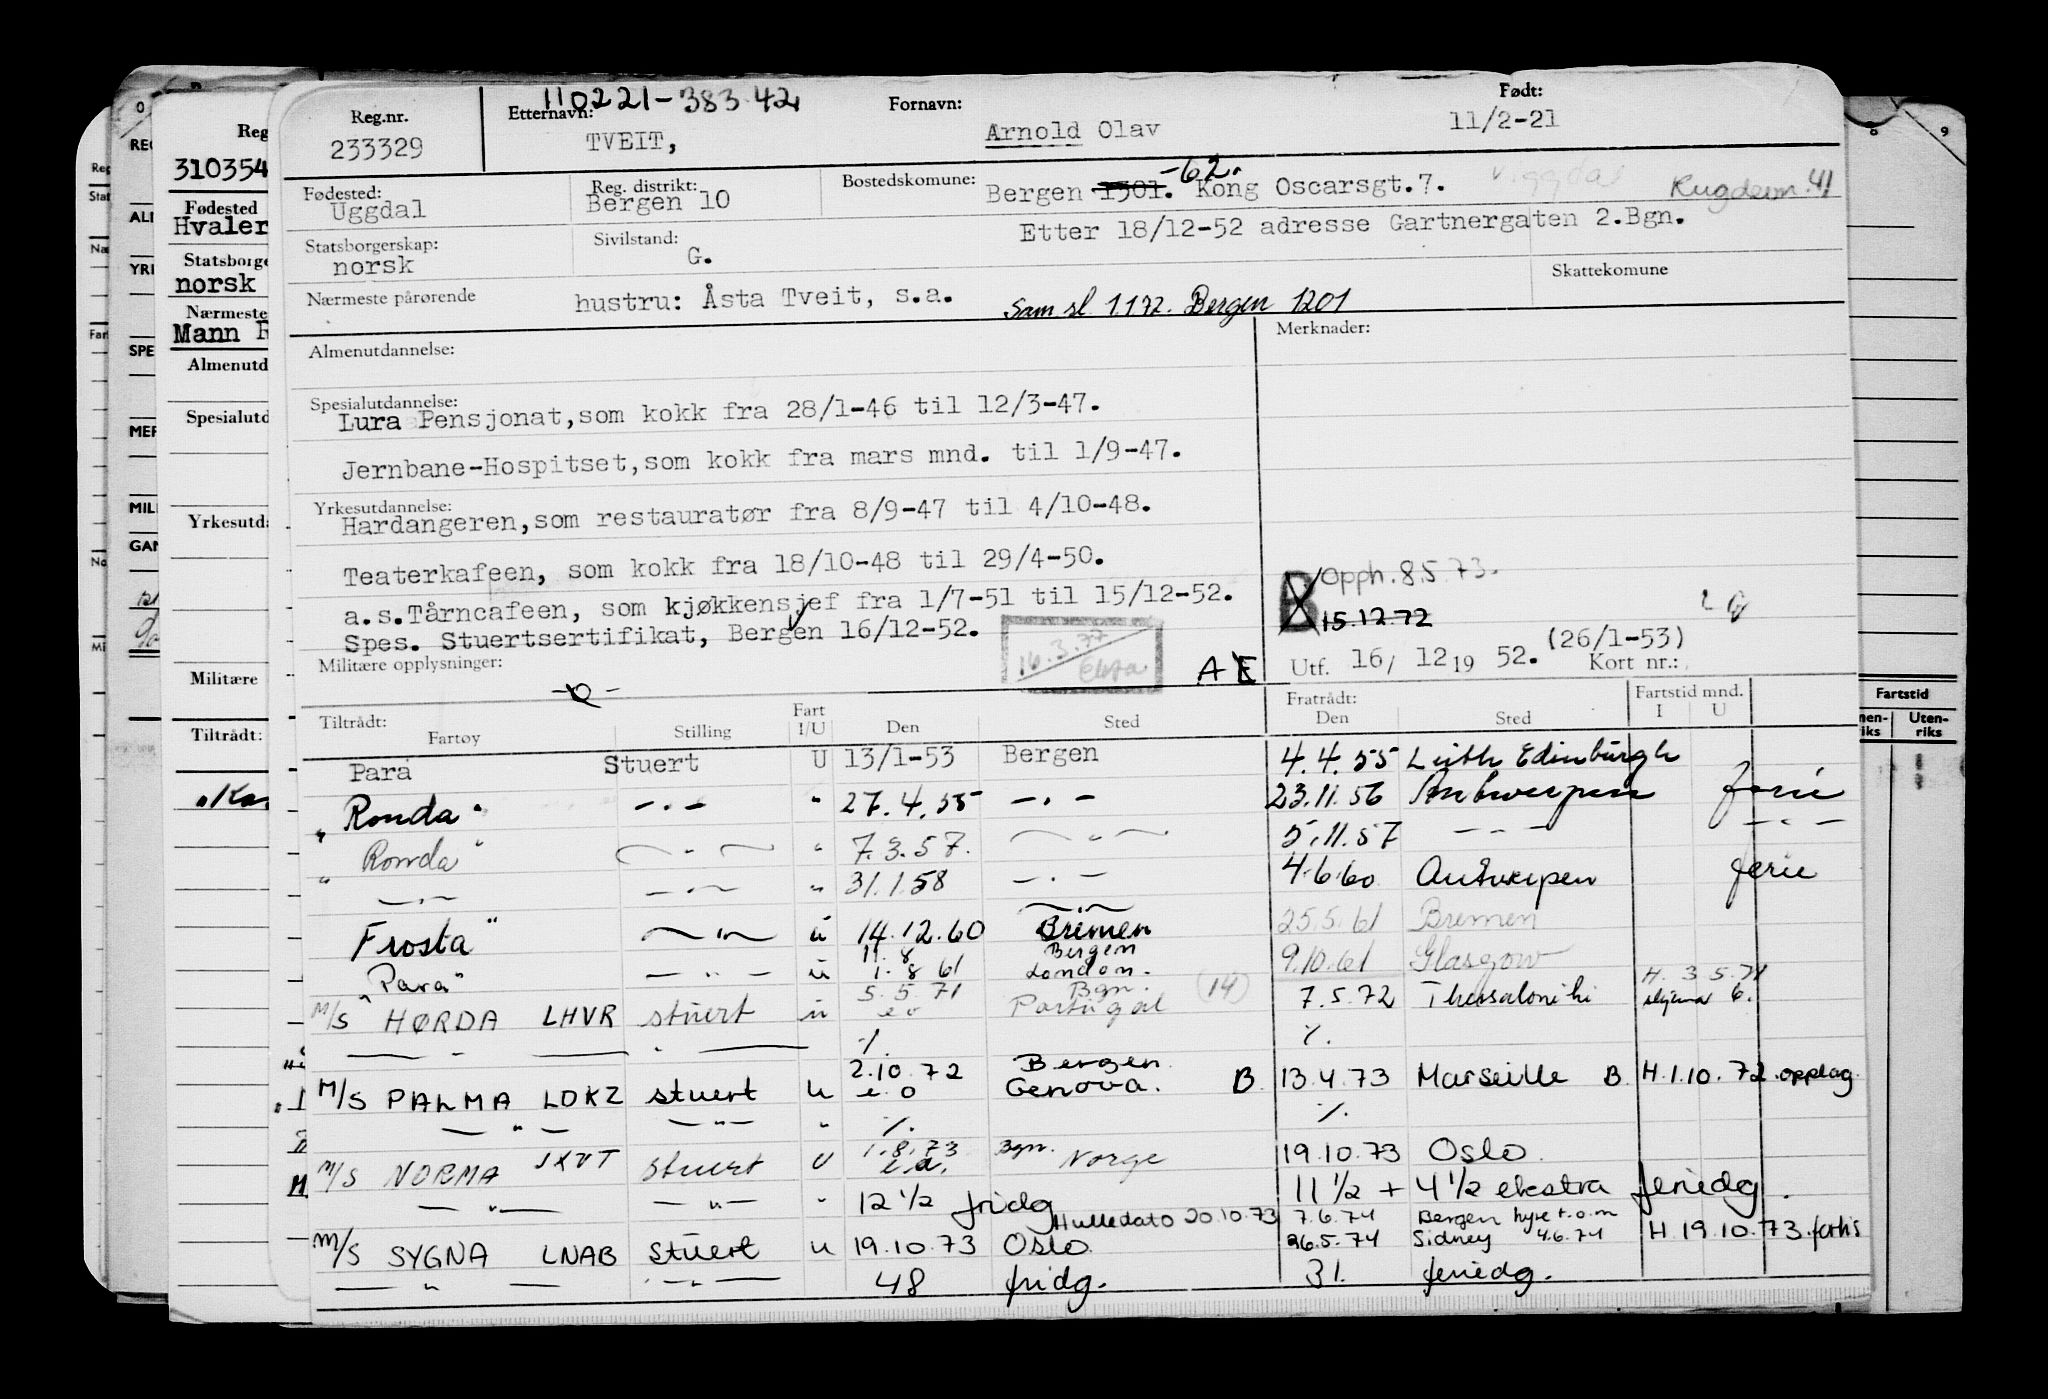 110221-383.42
Reg.nr. Etternavn: Fornavn: Født:
233329 TVEIT, Arnold Olav 11/2-21
Fødested: Reg. distrikt: Bostedskomune:
Uggdal Bergen 10 Bergen 1301. -62. Kong Oscarsgt.7. Uggdal
Statsborgerskap: Sivilstand: Etter 18/12-52 adresse Gartnergaten 2.Bgn.
norsk G. Skattekomune
Nærmeste pårørende hustru: Åsta Tveit, s.a. Sam. sl. 1.1.72. Bergen 1201
Almenutdannelse: Merknader:
Spesialutdannelse:
Lura Pensjonat,som kokk fra 28/1-46 til 12/3-47.
Jernbane-Hospitset,som kokk fra mars mnd. til 1/9-47.
Yrkesutdannelse:
Hardangeren,som restauratør fra 8/9-47 til 4/10-48.
Teaterkafeen, som kokk fra 18/10-48 til 29/4-50.
B Opph. 8.5.73.
a.s.Tårncafeen, som kjøkkensjef fra 1/7-51 til 15/12-52.
15.12.72
Spes. Stuertsertifikat, Bergen 16/12-52.
16.3.77
Militære opplysninger: AE Utf. 16/ 12 19 52. (26/1-53) Kort nr.:
Tiltrådt: Fratrådt: Fartstid mnd.
Fartøy Stilling Fart I/U Den Sted Den Sted I U
Para Stuert U 13/1-53 Bergen 4.4.55 Leith Edinburgh
"Ronda" -"- " 27.4.55 -"- 23.11.56 Antwerpen ferie
"Ronda" -"- " 7.3.57. -"- 5.11.57 -"- -"-
-"- -"- " 31.1.58 -"- 4.6.60 Antwerpen ferie
Frosta" -"- u 14.12.60 Bremen 25.5.61 Bremen
11.8 Bergen
"Para" -"- u 1.8 61 London. 9.10.61 Glasgow
5.5.71 Bgn. (14) H. 3 5.71
M/S HØRDA LHVR stuert u e o Portugal 7.5.72 Thessaloniki 6.
-"- -"- % %
2.10.72 Bergen
M/S PALMA LDKZ stuert u e.o Genova. B 13.4.73 Marseille B H.1.10.72.opplag
-"- -"- " % %
1.8.73 Bgn.
M/S NORMA JXVT stuert U e.o. Norge 19.10.73 Oslo.
-"- -"- " 12 1/2 fridg 11 1/2 + 4 1/2 ekstra feriedg.
Hulledato 20.10.73 7.6.74 Bergen hyre t.o.m 4.6.74
M/S SYGNA LNAB stuert u 19.10.73 Oslo. 26.5.74 Sidney H.19.10.73.forhis
-"- -"- 48 fridg. 31. feriedg.
310354
Fødested
Hvaler
Statsborge
norsk
Nærmeste
Mann
Almenutd
Spesialutd
Yrkesutda
Militære
Tiltrådt:
Fartstid
Uten-
riks